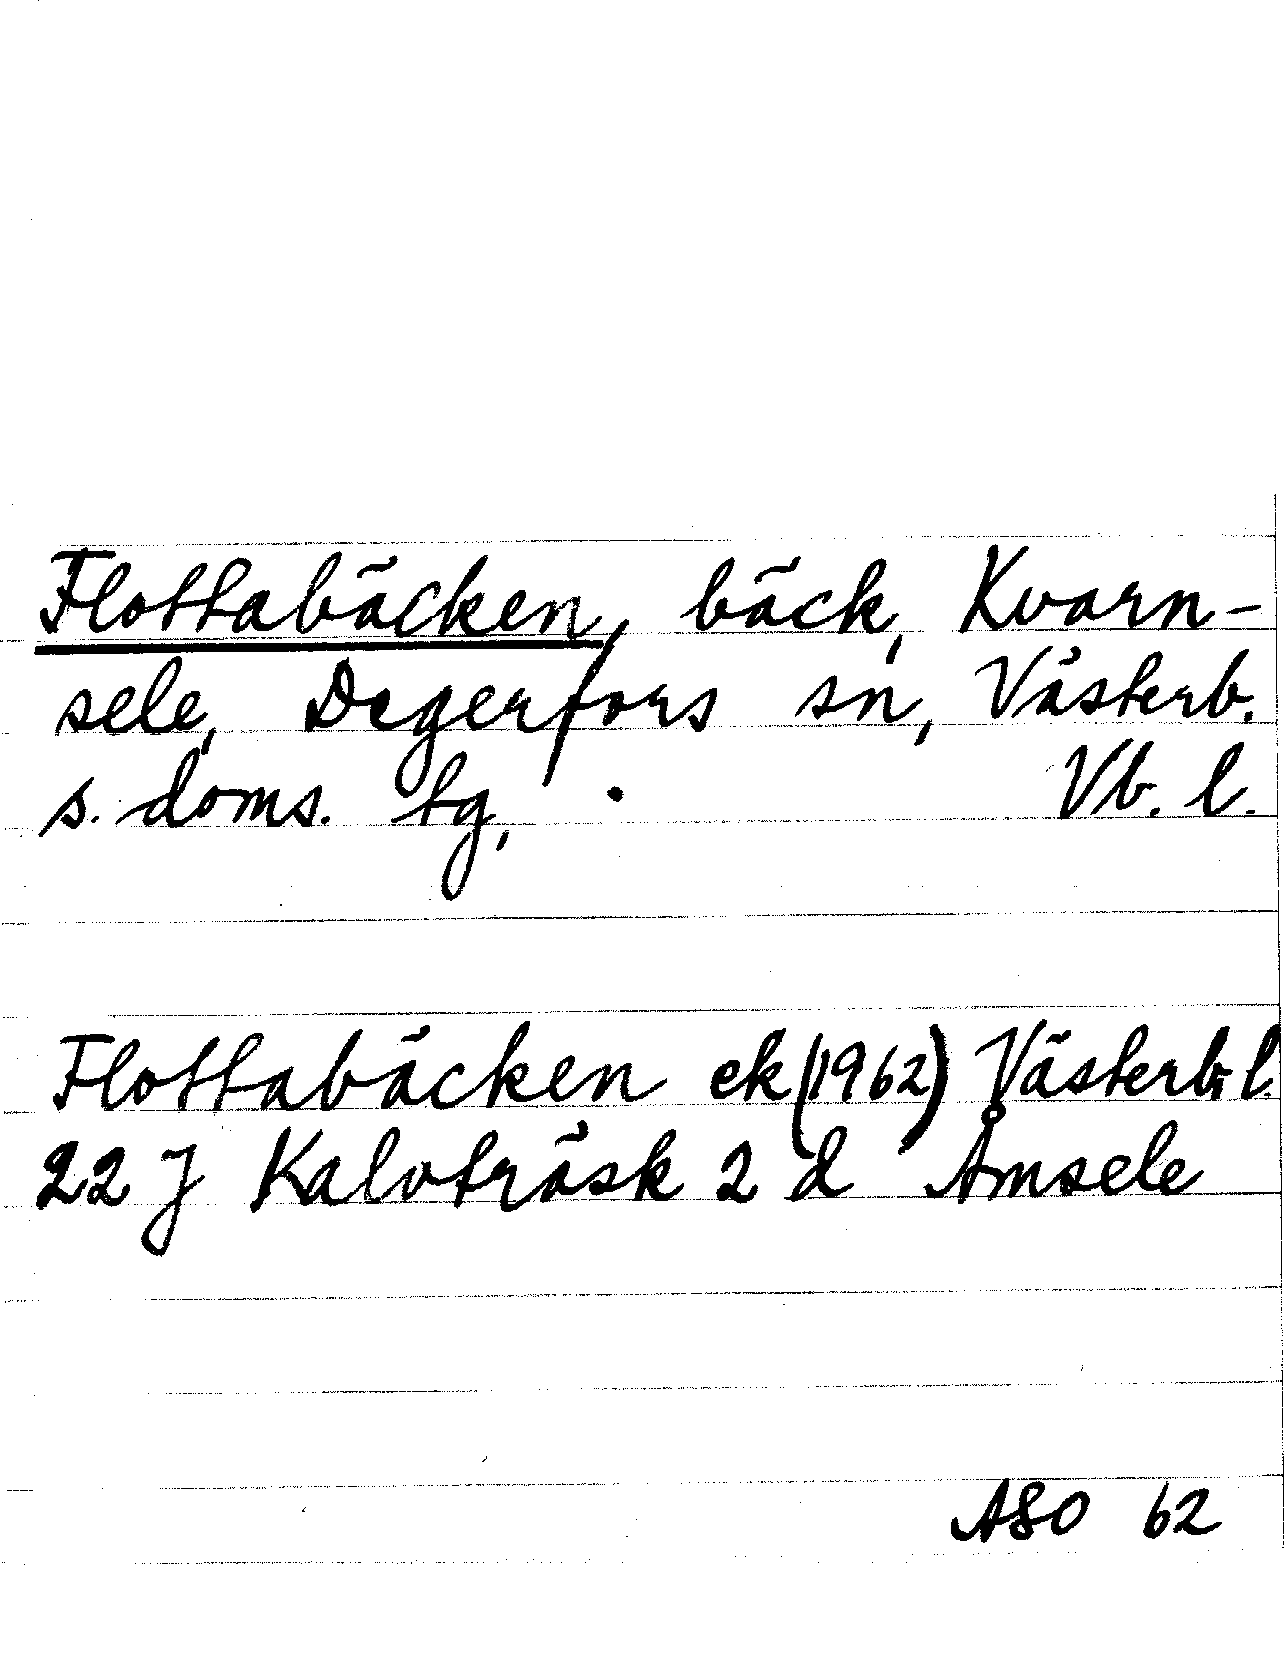 Flottabäcken, bäck, Kvarn-
sele, Degerfors sn, Västerb.
s. doms. tg, . Vb. l.
Flottabäcken ek (1962) Västerb. l.
22 J Kalvträsk 2 d Åmsele
ASO 62